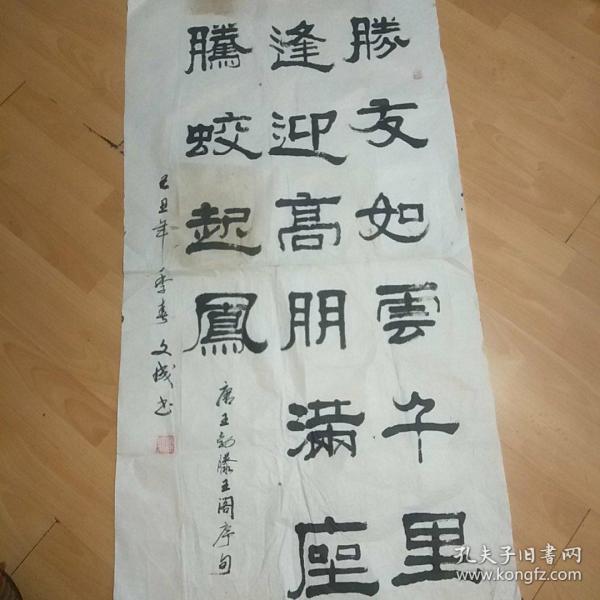 勝友如雲千里
逢迎高朋滿座
騰蛟起鳳
唐王勃滕王阁序句
己丑年季春文成书
孔夫子旧书网
www.kongfz.com